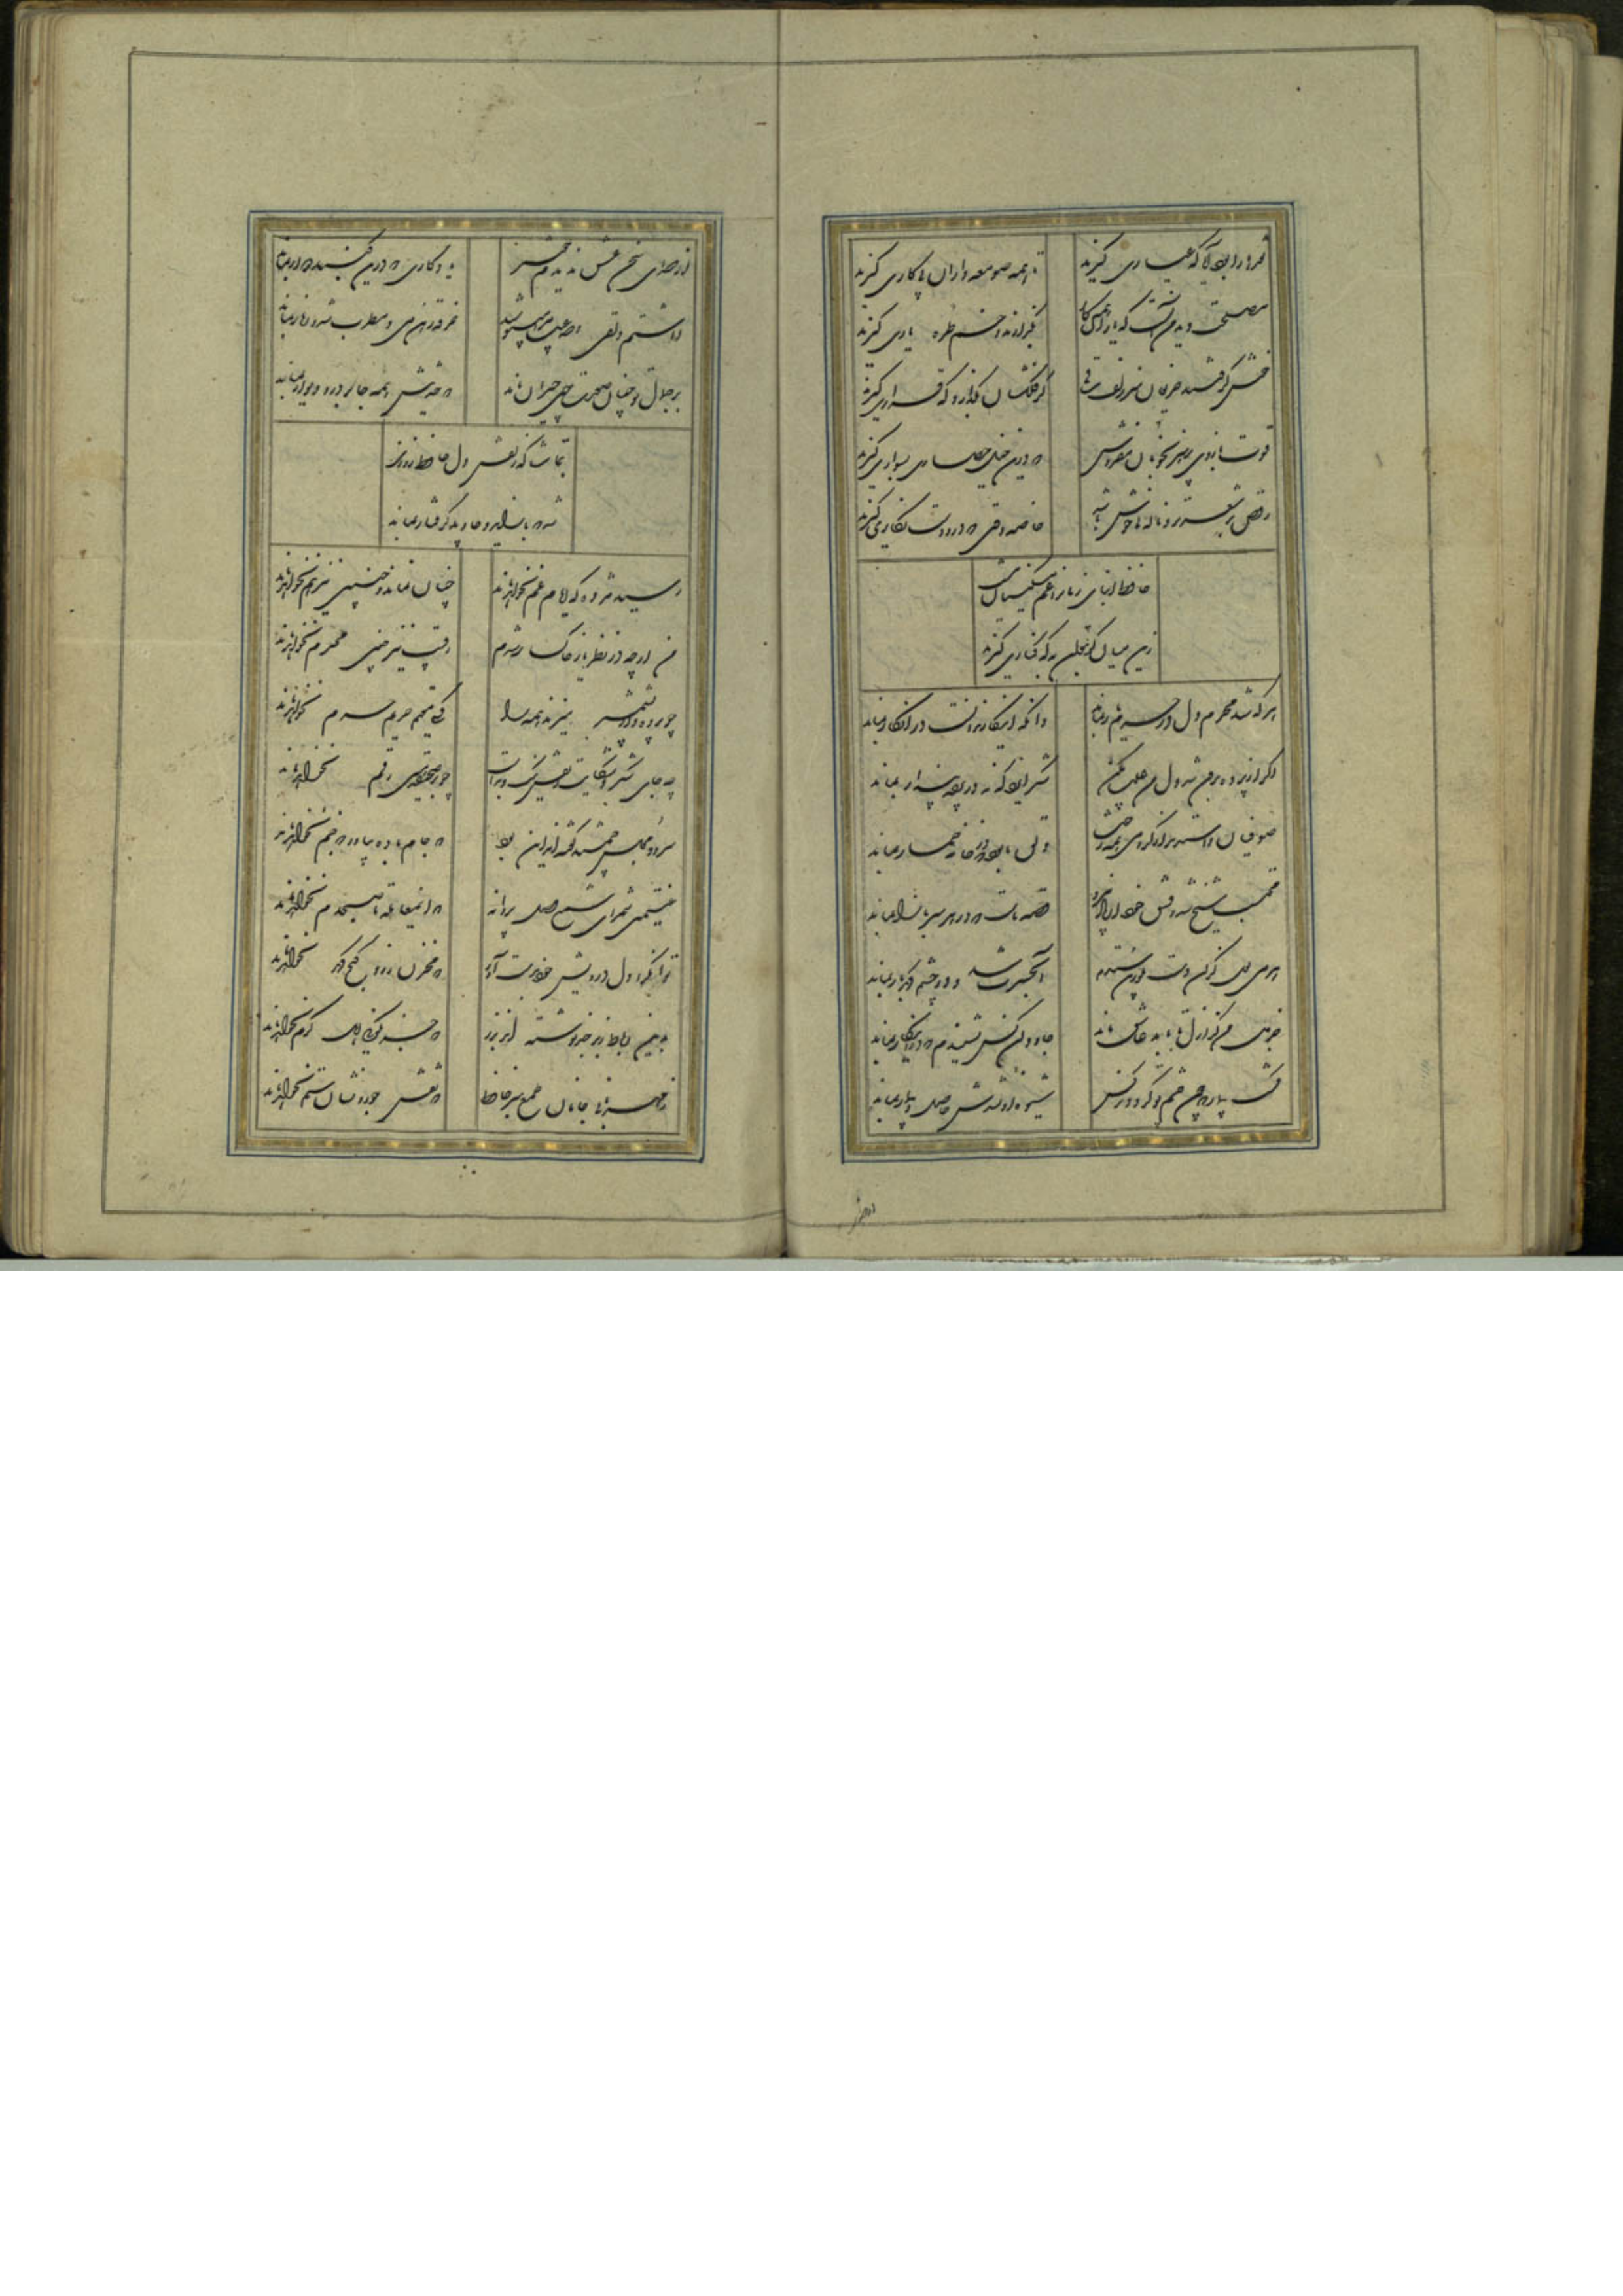 نقدها را بود آیا که عیاری گیرند
تا همه صومعه داران پی کاری گیرند
مصلحت دید من آنست که یاران همه کار
بگذارند و خم طره یاری گیرند
خوش گرفتند حریفان سر زلف ساقی
گر فلکشان بگذارد که قراری گیرند
قوت بازوی پرهیز بخوبان مفروش
که درین خیل حصاری بسواری گیرند
رقص بر شعر تر و ناله نی خوش باشد
خاصه رقصی که درو دست نگاری گیرند
حافظ ابنای زمان را غم مسکینان نیست
زین میان گر بتوان به که کناری گیرند
هر که شد محرم دل در حرم یار بماند
وانکه اینکار ندانست در انکار بماند
اگر از پرده برون شد دل من عیب مکن
شکر ایزد که نه در پرده پندار بماند
صوفیان واستدند از گرو می همه رخت
دلق ما بود که در خانه خمار بماند
محتسب شیخ شد و فسق خود از یاد ببرد
قصه ماست که در هر سر بازار بماند
هر می لعل کزان دست بلورین ستدیم
آب حسرت شد و در چشم گهربار بماند
جز دل من کز ازل تا بابد عاشق ماند
جاودان کس نشنیدم که در اینکار بماند
گشت بیمار که چون چشم تو گردد نرگس
شیوه او نشدش حاصل و بیمار بماند
از صدای سخن عشق ندیدم خوشتر
یادگاری که درین گنبد دوار بماند
داشتم دلقی و صد عیب مرا میپوشید
خرقه رهن می و مطرب شد و زنار بماند
بر جمال تو چنان صورت چین حیران ماند
که حدیثش همه جا بر در و دیوار بماند
بتماشاگه زلفش دل حافظ روزی
شد که باز آید و جاوید گرفتار بماند
رسید مژده که ایام غم نخواهد ماند
چنان نماند و چنین نیز هم نخواهد ماند
من ار چه در نظر یار خاکسار شدم
رقیب نیز چنین محترم نخواهد ماند
چو پرده دار بشمشیر میزند همه را
کسی مقیم حریم حرم نخواهد ماند
چه جای شکر و شکایت ز نقش نیک و بدست
چو بر صحیفه هستی رقم نخواهد ماند
سرود مجلس جمشید گفته اند این بود
که جام باده بیاور که جم نخواهد ماند
غنیمتی شمر ای شمع وصل پروانه
که این معامله تا صبحدم نخواهد ماند
توانگرا دل درویش خود بدست آور
که مخزن زر و گنج درم نخواهد ماند
برین رواق زبرجد نوشته اند بزر
که جز نکوئی اهل کرم نخواهد ماند
ز مهربانی جانان طمع مبر حافظ
که نقش جور و نشان ستم نخواهد ماند